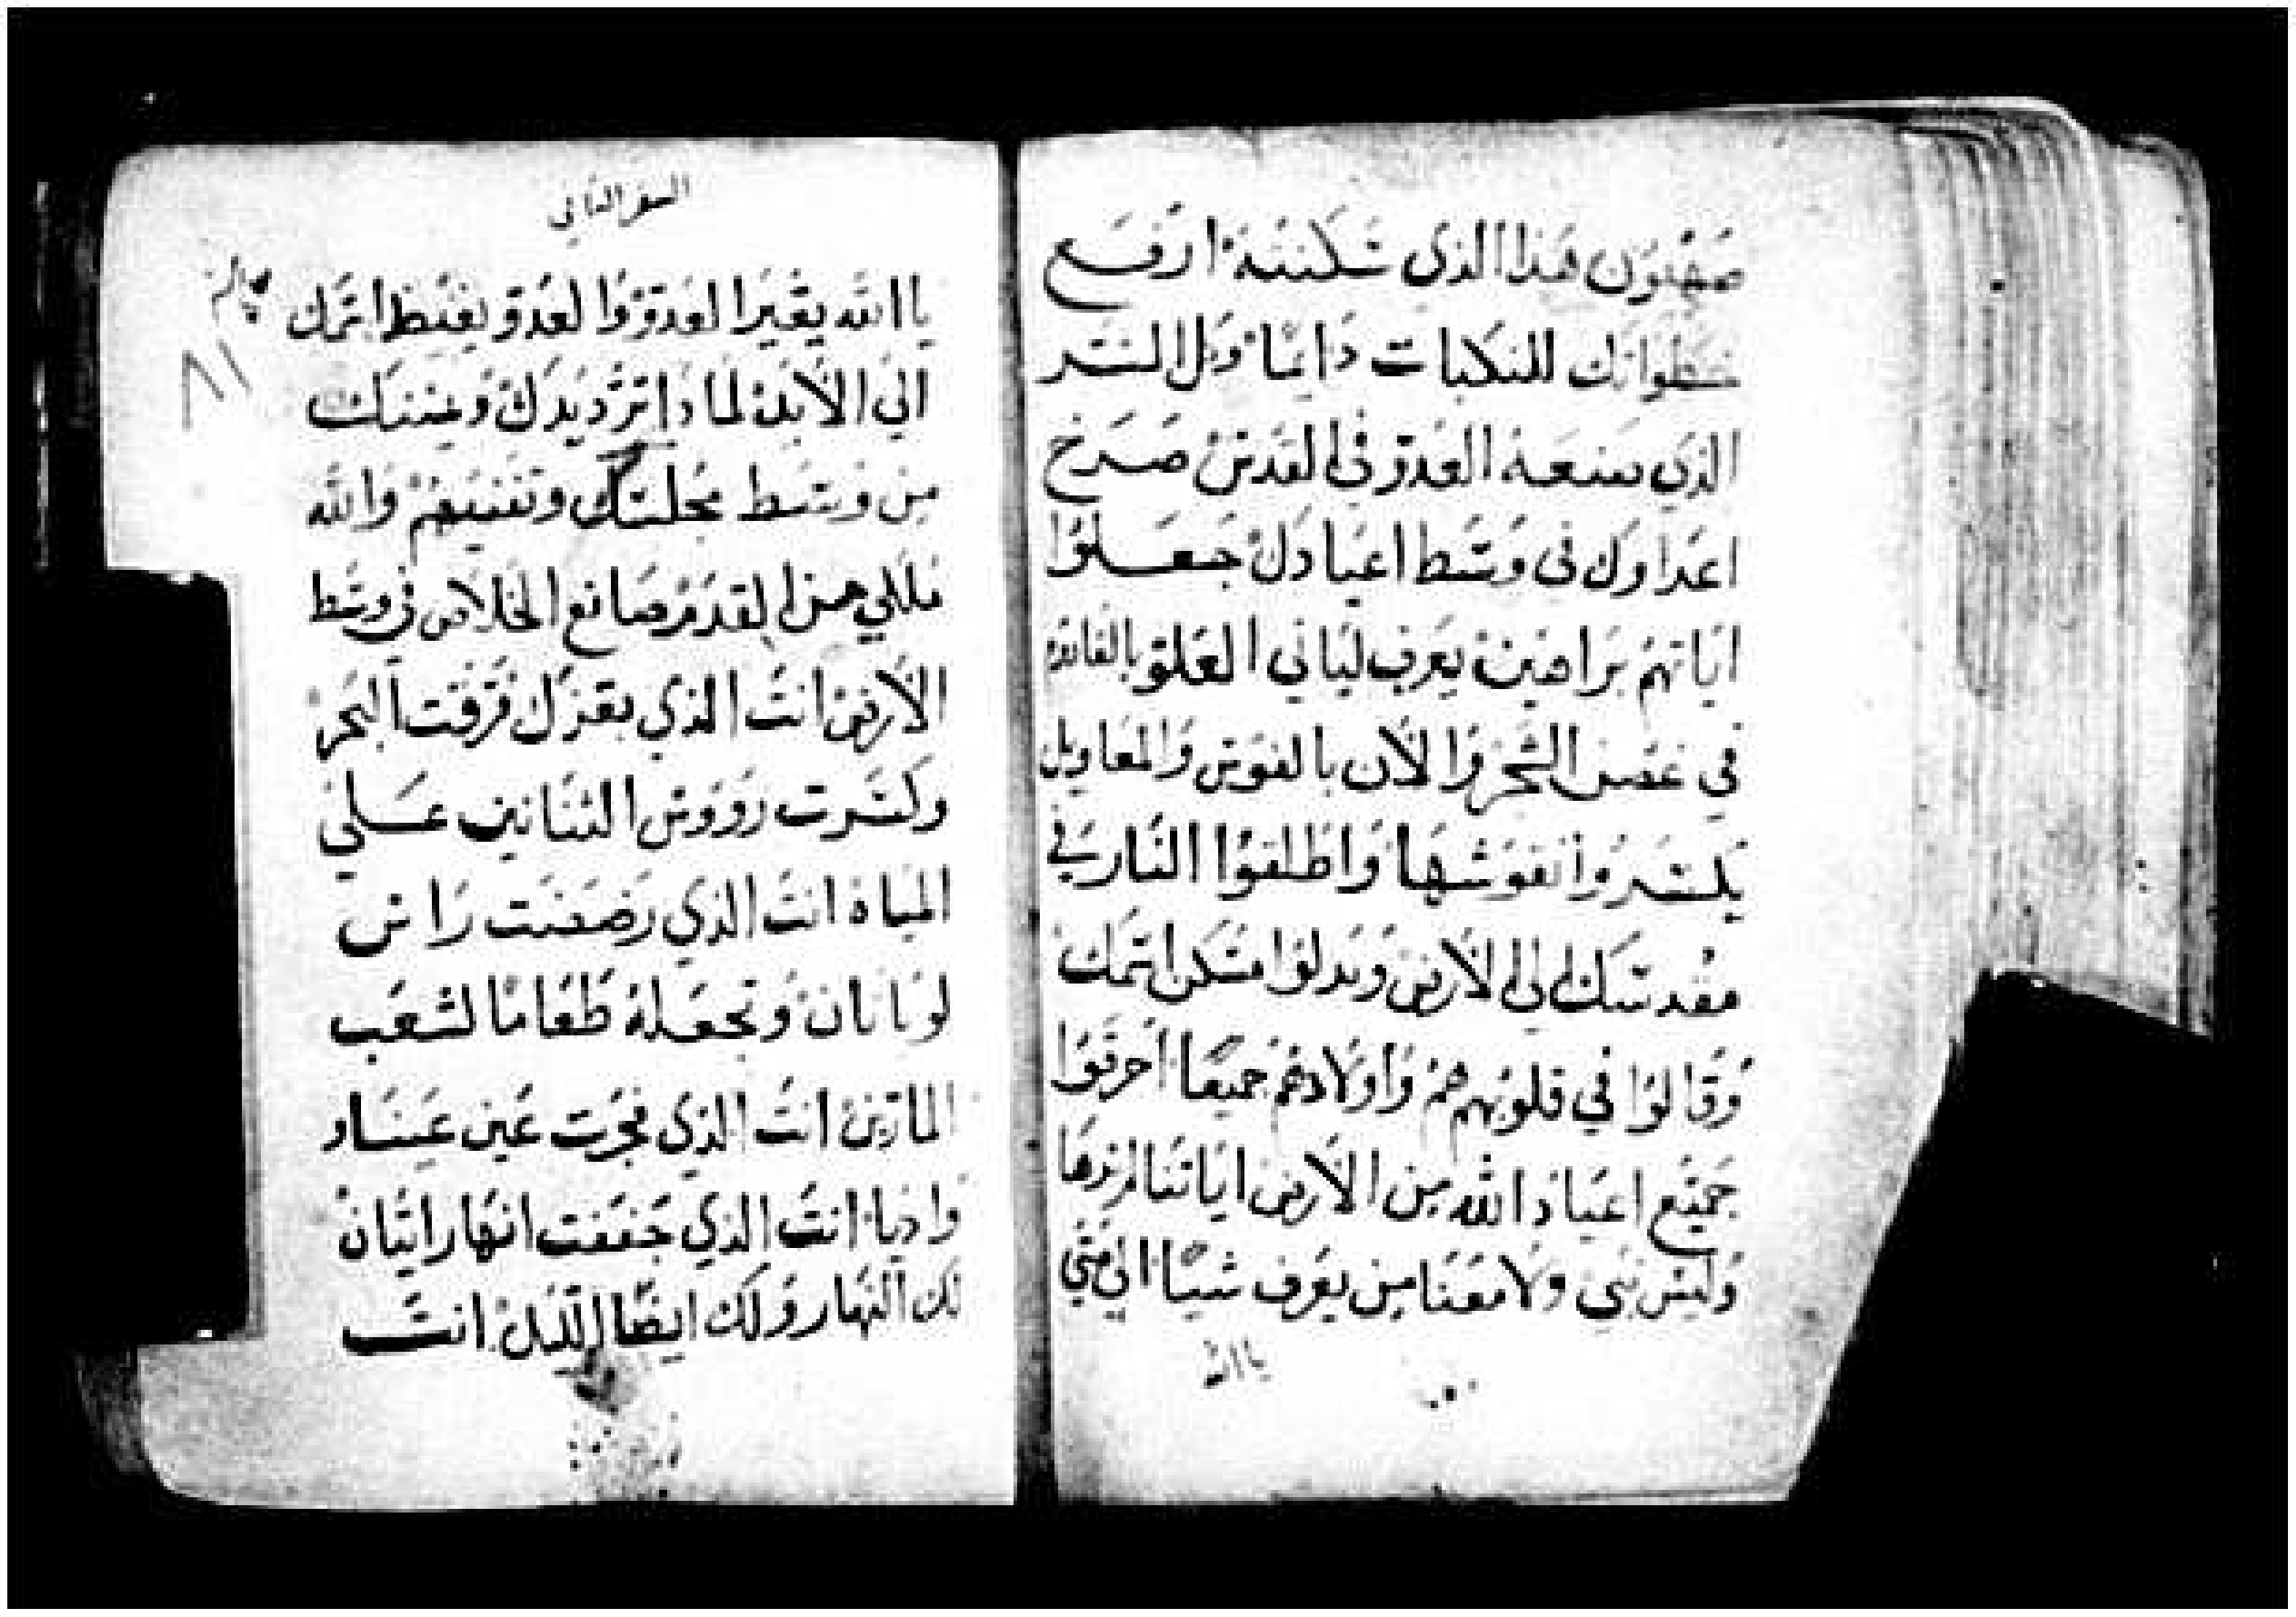 صَهْيُون هَذا الذى سَكَنتهُ ارْفَع
خطَواتك للنكبات دَايمًا وَكل الشر
الذى صنعهُ العَدو فى القدسْ صَرخ
اعدَاوك فى وَسَط اعيَادكْ جَعَلوُا
ايَاتهمْ بَراهينْ يعَرف ليَانى العَلو
في غصن الشجر وَالان بالفوس وَالمعَاويل
يكسَروُا نقوشهَا وَاطلقوُا النَار في
مقدسَك الى الارضْ وَبدلوا مسَكن اسَمك
وَقالوُا في قلوبُهم همْ وَاوَلادهمْ جميعًا احَرقوَا
جَميَع اعيَاد الله من الارض ايَاتنَا لم نرهَا
وَليسْ نبى وَلا معَنا من يعَرف شيًا الى متى
يا الله
السفر الثانى
يا الله يعَير العَدو وَالعَدو يغيظ اسَمك
الى الابَدْ لمَاذا ترَد يَدكْ وَيمينك
من وَسَط مَحلتك وتفنيهمْ وَالله
مَلكي من القدَمْ صَانع الخَلاص فى وسَط
الارضْ انتَ الذي بقوتك فَرقت البَحرْ
وَكسَرت رَووس التنانين عَلي
الميَاه انتَ الذي رَضضَت رَاس
لوَيَاتانْ وَتجعَلهُ طعَامًا لشعَب
انتَ الذي فجَرت عَين عَينَاو
وَاديا انتَ الذي جَففت انهَار ايثانْ
لك النهَار وَلك ايضًا الليَلْ انتَ